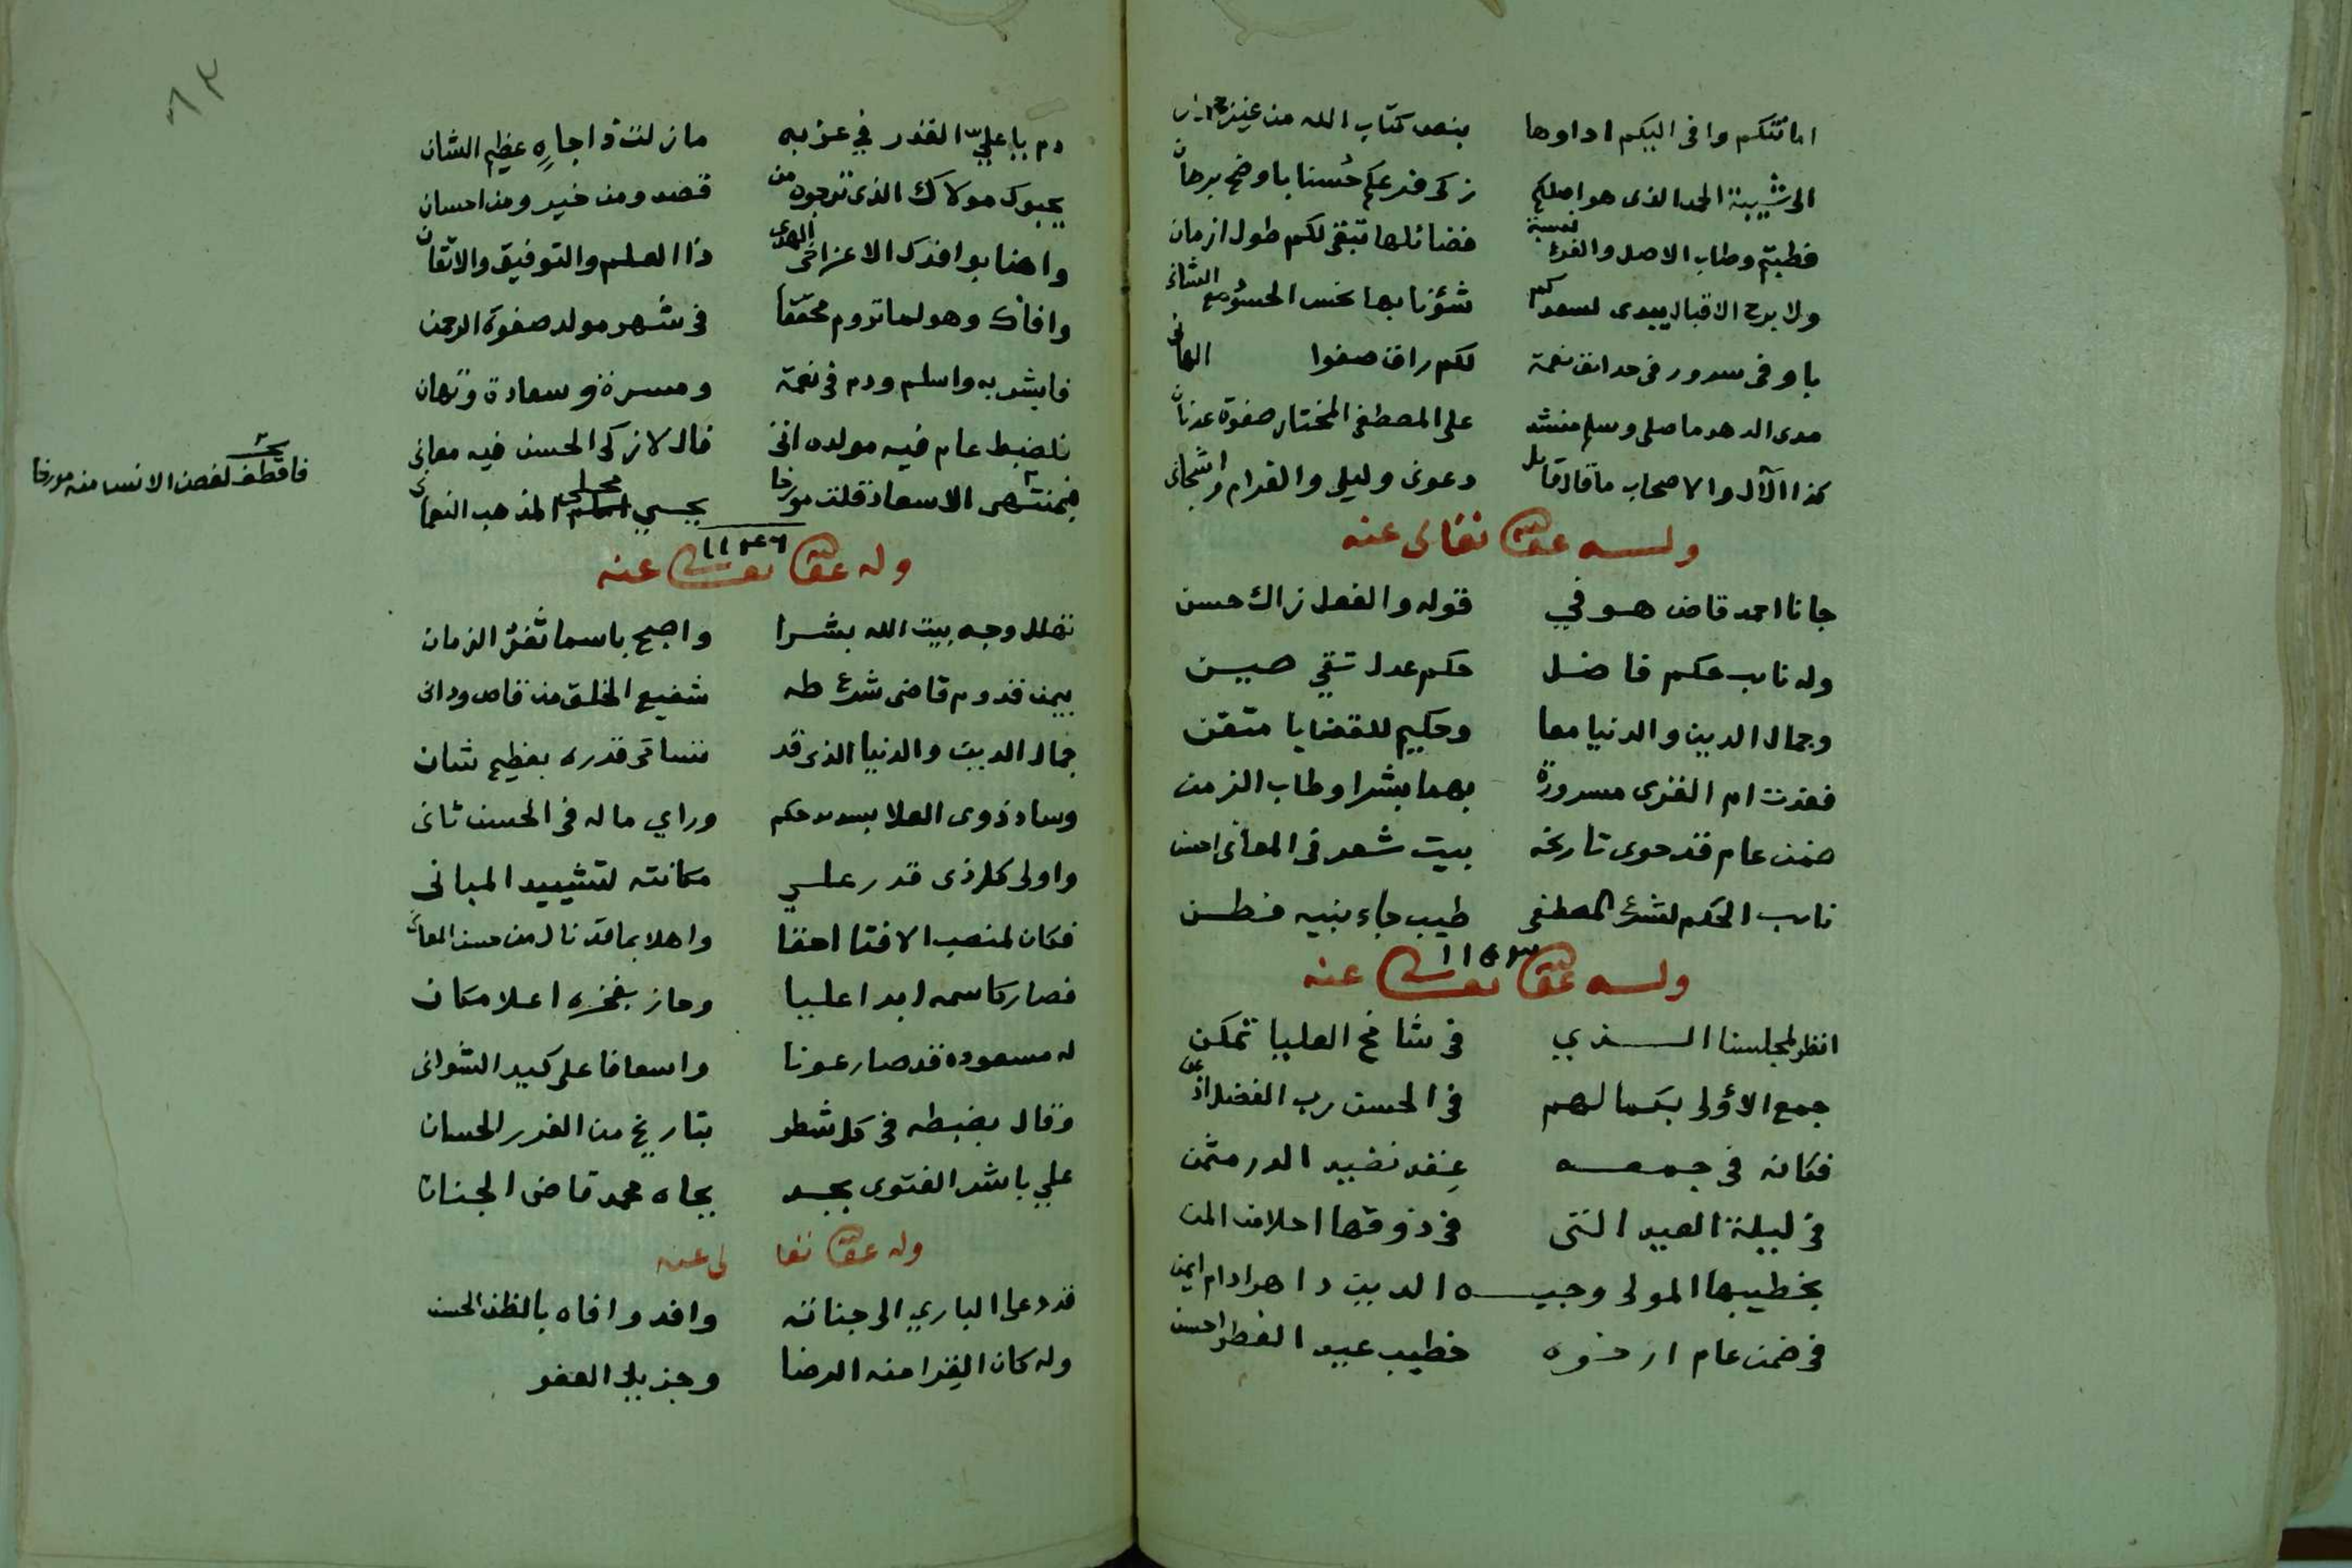 امانتكم وافى اليكم اداوها بنص كتاب الله من غير
الى شيبة الحمد الذى هو اصلكم زكى فرعكم حسنا باوضح برهان
فطبتم وطاب الاصل والفرع نسبة فضائلها تبقى لكم طول ازمان
ولا برح الاقبال يبدى لسعدكم شؤنا بها نخس الحسود مع الشانئ
باوفى سرور فى حدائق نعمة لكم راق صفوا الهانى
مدى الدهر ما صلى وسلم منشد على المصطفى المختار صفوة عدنان
كذا الآل والاصحاب ما قال قائل دعونى وليلى والغرام واشجانى
وله عفى الله تعالى عنه
جانا احمد قاض هو فى قوله والفعل زاك حسن
وله نايب حكم فاضل حكم عدل تقي صين
وجمال الدين والدنيا معا وحكيم للقضايا متقن
فغدت ام القرى مسرورة بهما بشرا وطاب الزمن
ضمن عام قد حوى تاريخه بيت شعر فى المعانى احسن
نايب الحكم لشرع المصطفى طيب جاء نبيه فطن
١١٥٣
وله عفى الله تعالى عنه
انظر لمجلسنا الذي فى شامخ العليا تمكن
جمع الأولى بكمالهم فى الحسن رب الفضل اذعن
فكانه فى جمعه عقد نضيد الدر مثمن
فى ليلة العيد التى فى ذوقها احلا من المن
بخطيبها المولى وجيه الدين دا هو ادام ايمن
فى ضمن عام ارخوه خطيب عيد الفطر احسن
دم يا عليّ القدر في عز به ما زلت ذا جاهٍ عظيم الشان
يحبوك مولاك الذى ترجوه من قصد ومن خير ومن احسان
واهنا بوافدك الاعز اخى الهدى ذا العلم والتوفيق والاتقان
وافاك وهو لما تروم محققا فى شهر مولد صفوة الرحمن
فابشر به واسلم ودم فى نعمة ومسرة وسعادة وتهان
فلضبط عام فيه مولده اتى فال لازكى الحسن فيه معانى
فبمنتهى الاسعاد قلت مورخا يحيي لمذهب النعمان
فاقطف لغصن الانس منه مورخا
وله عفى الله تعالى عنه
تهلل وجه بيت الله بشرا واصبح باسما ثغر الزمان
بيمن قدوم قاضى شرع طه شفيع الخلق من قاص ودانى
جمال الدين والدنيا الذى قد تسامى قدره بعظيم شان
وساد ذوى العلا بسديد حكم وراي ما له فى الحسن ثانى
واولى كل ذى قدر علي مكانته لتشييد المبانى
فكان لمنصب الافتا احقا واهلا بما قد نال من حسن المعانى
فصار كاسمه ابدا عليا وحاز بفخره اعلا مكان
له مسعوده قد صار عونا واسعافا على كيد الشوانى
وقال بضبطه فى كل شطر بتاريخ من الغرر الحسان
علي باشر الفتوى بجد بجاه محمد قاضى الجنان
وله عفى الله تعالى عنه
قد دعى الباري الى جناته وافد وافاه بالظن الحسن
وله كان القرا منه الرضا وجزيل العفو